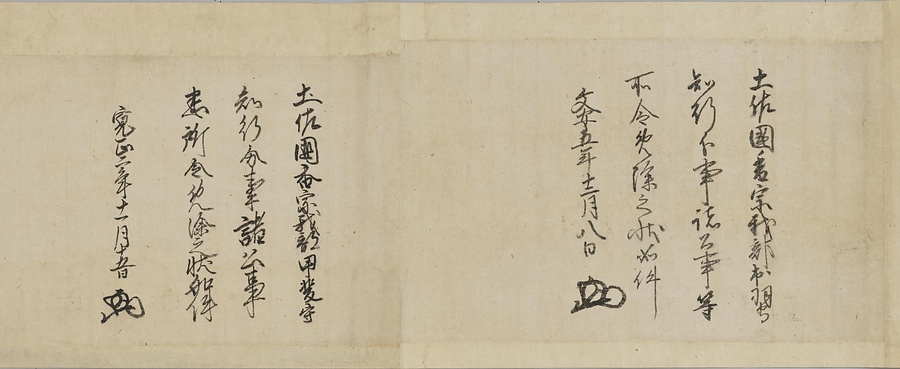 土佐國香宗我部出羽
知行分事諸公事等
所令免除之状如件
文安五年十二月八日
土佐國香宗我部甲斐守
知行分事諸公事
悉所令免除之状如件
寛正二年十一月十五日